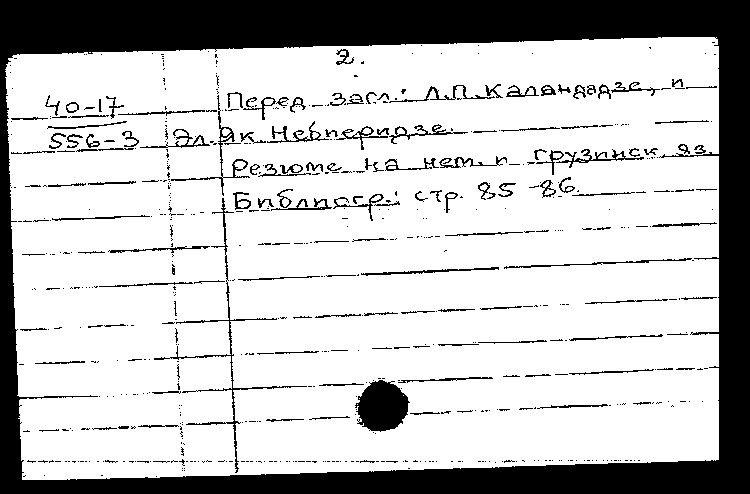 2.
40-17 Перед загл.: Л.П. Каландадзе, и
556-3 Эл. Як. Небперидзе.
Резюме на нем. и грузинск. яз.
Библиогр.: стр. 85-86.